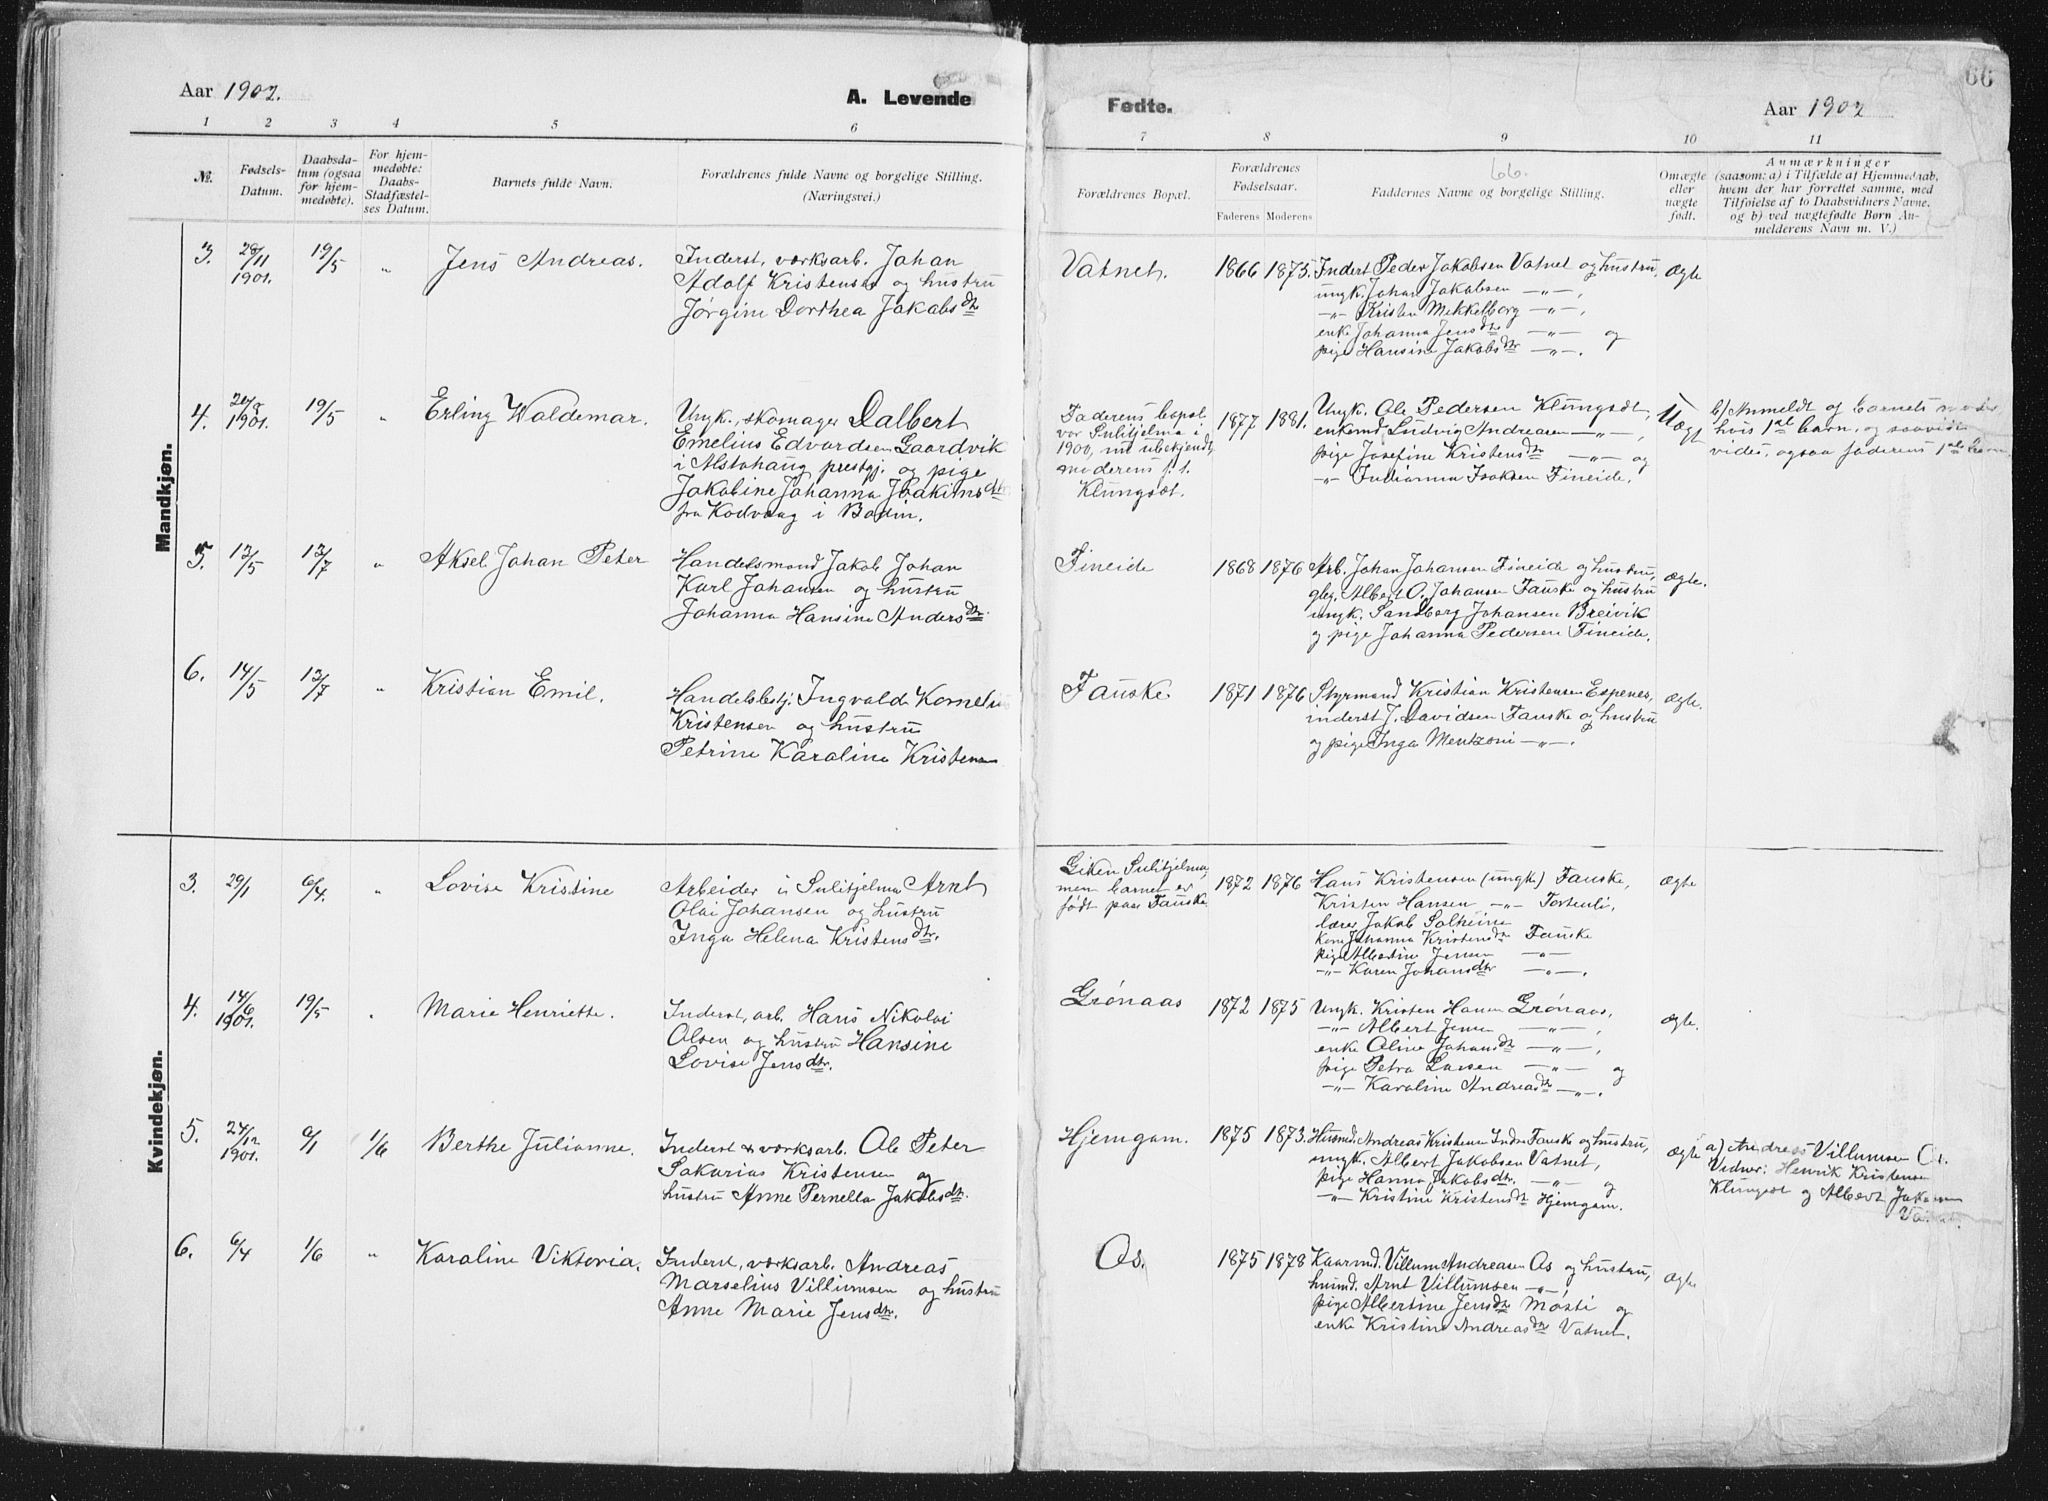 Aar 1902.
A. Levende
Fødte.
Aar 1902
66
1 2 3 4 5 6 7 8 9 10 11
№.
Fødsels-
Datum.
Daabsda-
tum (ogsaa
for hjem-
medøbte).
For hjem-
medøbte:
Daabs-
Stadfæstel-
ses Datum.
Barnets fulde Navn.
Forældrenes fulde Navne og borgelige Stilling.
(Næringsvei.)
Forældrenes Bopæl.
Forældrenes
Fødselsaar.
Faderens Moderens
66.
Faddernes Navne og borgelige Stilling.
Omægte
eller
nægte
født.
Anmærkninger
(saasom: a) i Tilfælde af Hjemmedaab,
hvem der har forrettet samme, med
Tilføielse af to Daabsvidners Navne,
og b) ved nægtefødte Børn An-
melderens Navn m. V.)
Mandkjøn.
3. 29/11 1901. 19/5 „ Jens Andreas.
Inderst, værksarb. Johan
Adolf Kristensen og hustru
Jørgine Dorthea Jakobsdtr
Vatnet. 1866 1873.
Inderst Peder Jakobsen Vatnet og hustru,
ungk. Johan Jakobsen —„—,
—„— Kristen Mikkelborg —„—,
enke Johanna Jensdtr —„— og
pige Hansine Jakobsdtr —„—.
ægte
4. 1901. 19/5 „ Erling Waldemar.
Ungk., skomager Dalbert
Emelius Edvardsen Gaardvik
i Alstahaug prestgj. og pige
Jakobine Johanna Joakimsdtr
fra Kodvaag i Bodin.
Faderens bopæl
var Sulitjelma i
1900, nu ubekjendt,
moderens p.t.
Klungset.
1877 1881.
Ungk. Ole Pedersen Klungset,
enkemd. Ludvig Andreasen —„—,
pige Josefine Kristensdtr —„— og
—„— Julianna Isaksen Fineide.
Uægt
b) Anmeldt af barnets moder
hvis 1ste barn, og saavidt
vides, ogsaa faderens 1ste barn
5. 12/5 13/7 „ Aksel Johan Peter
Handelsmand Jakob Johan
Karl Johansen og hustru
Johanna Hansine Andersdtr.
Fineide 1868 1876
Arb. Johan Johansen Fineide og hustru,
gbr. Albert O. Johansen Fauske og hustru
ungk. Sandberg Johansen Breivik
og pige Johanna Pedersen Fineide.
ægte.
6. 14/5 13/7 „ Kristian Emil.
Handelsbestj. Ingvald Kornelius
Kristensen og hustru
Petrine Karoline Kristensen
Fauske. 1871 1876
Styrmand Kristian Kristensen Espenes,
inderst J. Davidsen Fauske og hustru
og pige Inga Mentzoni —„—.
ægte.
Kvindekjøn.
3. 29/1 6/4. „ Lovise Kristine
Arbeider i Sulitjelma Arnt
Olai Johansen og hustru
Inga Helena Kristensdtr.
Giken Sulitjelma,
men barnet er
født paa Fauske.
1872 1876
Hans Kristensen (ungk.) Fauske,
Kristen Hansen —„— Tortenli,
lærer Jakob Solheim
kone Johanna Kristensdtr Fauske
pige Albertine Jensen —„—
—„— Karen Johansdtr —„—.
ægte
4. 14/6 1901. 19/5 „ Marie Henriette.
Inderst, arb. Hans Nikolai
Olsen og hustru Hansine
Lovise Jensdtr.
Grønaas 1872 1875
Ungk. Kristen Hansen Grønaas,
—„— Albert Jensen —„—,
enke Oline Johansdtr —„—,
pige Petra Larsen —„— og
—„— Karoline Andreasdtr —„—.
ægte.
5. 24/12 1901. 6/1 1/6 Berthe Julianne.
Inderst & værksarb. Ole Peter
Sakarias Kristensen og
hustru Anne Pernella Jakobsdtr.
Hjemgam. 1875 1873.
Husmd. Andreas Kristensen Indre Fauske og hustru,
ungk. Albert Jakobsen Vatnet,
pige Hanna Jakobsdtr. —„— og
—„— Kristine Kristensdtr Hjemgam.
ægte
a) Andreas Villumsen Os.
Vidner: Henrik Kristensen
Klungset og Albert Jakobsen
Vatnet.
6. 6/4 1/6 „ Karoline Viktoria.
Inderst, værksarb. Andreas
Marselius Villumsen og hustru
Anne Marie Jensdtr.
Os. 1875 1878
Kaarmd. Villum Andreasen Os og hustru,
husmd. Arnt Villumsen —„—,
pige Albertine Jensdtr Mosti og
enke Kristine Andreasdtr Vatnet.
ægte